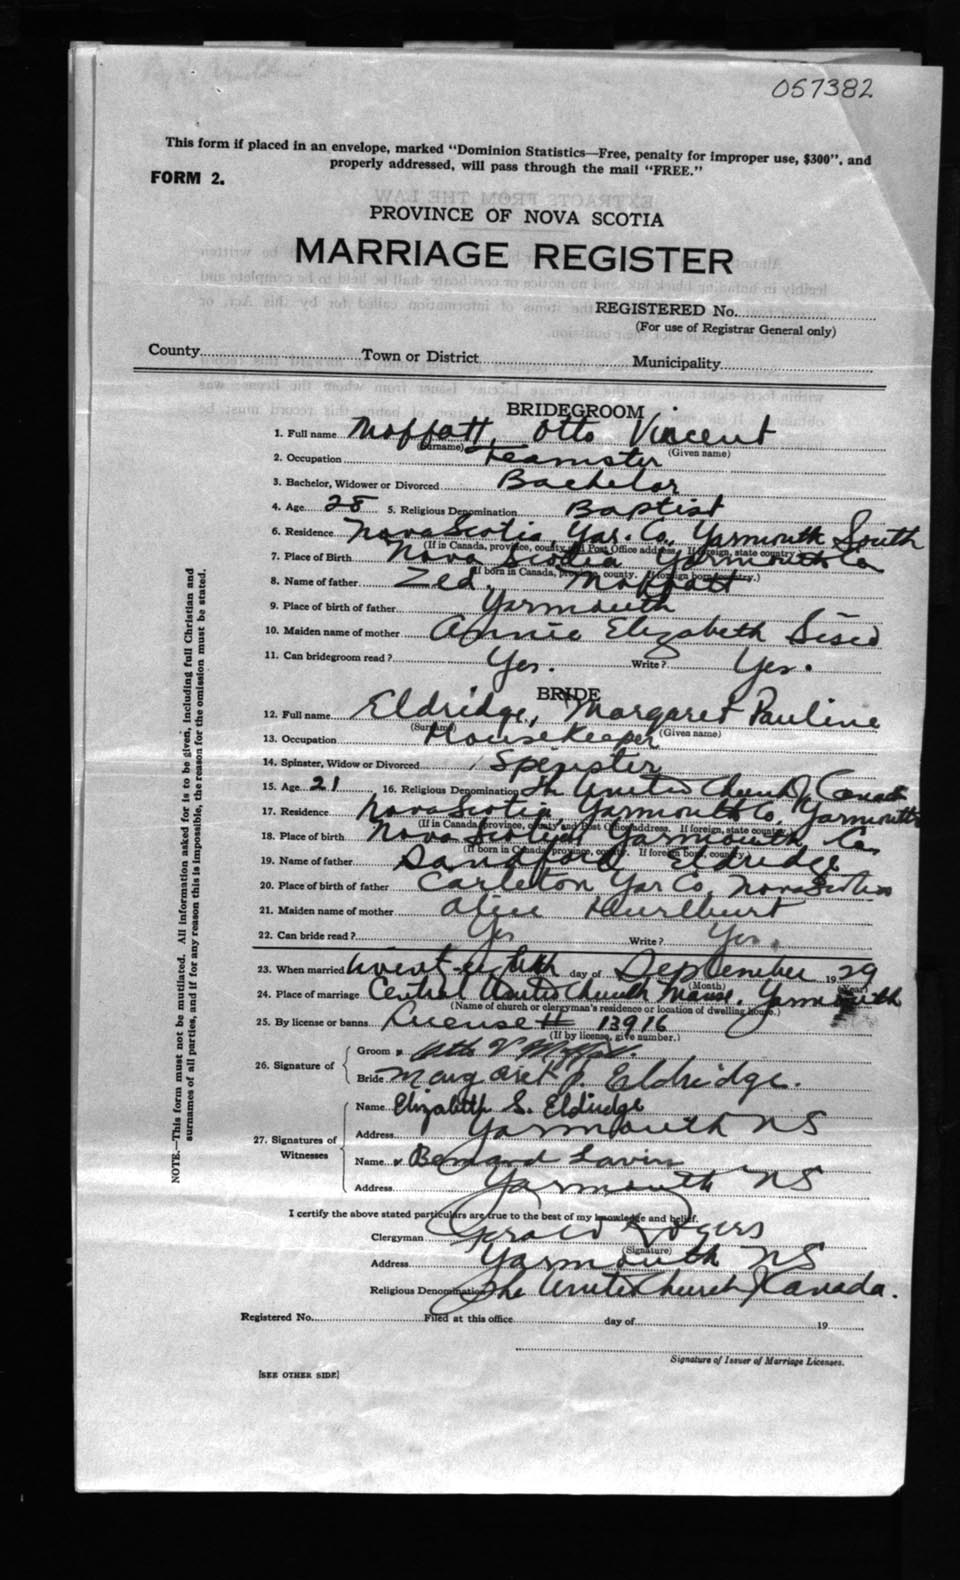 057382
This form if placed in an envelope, marked "Dominion Statistics—Free, penalty for improper use, $300", and
properly addressed, will pass through the mail "FREE."
FORM 2.
PROVINCE OF NOVA SCOTIA
MARRIAGE REGISTER
REGISTERED No.
(For use of Registrar General only)
County Town or District Municipality
BRIDEGROOM
1. Full name Moffatt, Otto Vincent
(Surname) (Given name)
2. Occupation Teamster
3. Bachelor, Widower or Divorced Bachelor
4. Age 28 5. Religious Denomination Baptist
6. Residence Nova Scotia, Yar. Co., Yarmouth South
(If in Canada, province, county and Post Office address. If foreign, state country
7. Place of Birth Nova Scotia Yarmouth Co
(If born in Canada, province, county. If foreign born, country.)
8. Name of father Zed. Moffatt
9. Place of birth of father Yarmouth
10. Maiden name of mother Annie Elizabeth
11. Can bridegroom read? Yes. Write? Yes.
BRIDE
12. Full name Eldridge, Margaret Pauline
(Surname) (Given name)
13. Occupation Housekeeper
14. Spinster, Widow or Divorced Spinster
15. Age 21 16. Religious Denomination The United Church of Canada
17. Residence Nova Scotia, Yarmouth Co. Yarmouth
(If in Canada, province, county and Post Office address. If foreign, state country
18. Place of birth Nova Scotia, Yarmouth Co
(If born in Canada, province, county. If foreign born, country
19. Name of father Sandford Eldridge
20. Place of birth of father Carleton Yar Co, Nova Scotia
21. Maiden name of mother Alice Hurlburt
22. Can bride read? Yes Write? Yes.
23. When married day of September 1929
(Month) (Year)
24. Place of marriage Central United Church Manse, Yarmouth
(Name of church or clergyman's residence or location of dwelling house.)
25. By license or banns License # 13916
(If by license, give number.)
26. Signature of
Groom x Otto V Moffatt.
Bride Margaret P. Eldridge.
27. Signatures of Witnesses
Name Elizabeth S. Eldridge
Address Yarmouth NS
Name x Bernard Lavin
Address Yarmouth NS
I certify the above stated particulars are true to the best of my knowledge and belief.
Clergyman Gerald Rogers
(Signature)
Address Yarmouth NS
Religious Denomination The United Church of Canada.
Registered No. Filed at this office day of 19
Signature of Issuer of Marriage Licenses.
[SEE OTHER SIDE]
NOTE.—This form must not be mutilated. All information asked for is to be given, including full Christian and
surnames of all parties, and if for any reason this is impossible, the reason for the omission must be stated.